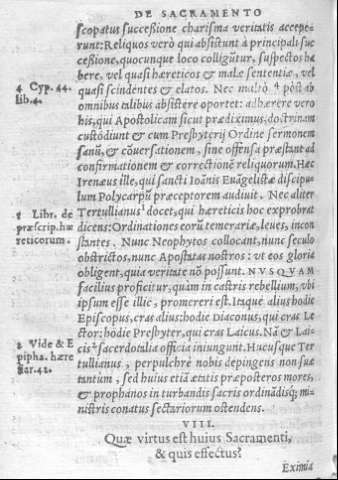 DE SACRAMENTO
scopatus successione charisma veritatis accepe-
runt: Reliquos verò qui absistunt à principali suc
cessione, quocunque loco colligũtur, suspectos ha
bere, vel quasi hæreticos & malæ sententiæ, vel
4 Cyp. 44.
quasi scindentes & elatos. Nec
lib. 4.
omnibus talibus absistere oportet: adhærere vero
his, qui Apostolicam sicut prædiximus, doctrinam
custodiunt & cum Presbyterij Ordine sermonem
sanũ, & cõuersationem, sine offensa præstant ad
confirmationem & correctionẽ reliquorum. Hæc
Irenæus ille, qui sancti Ioãnis Euãgelistæ discipu-
lum Polycarpũ præceptorem audiuit. Nec aliter
5 Libr. de
Tertullianus docet, qui hæreticis hoc exprobrat
præscrip. hæ
dicens: Ordinationes eorũ temerariæ, leues, incon
reticorum.
stantes. Nunc Neophytos collocant, nunc seculo
obstrictos, nunc Apostatas nostros: vt eos gloria
obligent, quia veritate nõ possunt. NVSQVAM
facilius proficitur, quàm in castris rebellium, vbi
ipsum esse illic, promereri est. Itaque alius hodie
Episcopus, cras alius: hodie Diaconus, qui cras Le
ctor: hodie Presbyter, qui cras Laicus. Nã & Lai-
2 Vide & E
cis sacerdotalia officia iniungunt. Hucusque Ter
pipha. hære
tullianus, perpulchrè nobis depingens non suæ
sar. 42.
tantum, sed huius etiã ætatis præposteros mores,
& prophanos in turbandis sacris ordinãdisq; mi-
nistris conatus sectariorum ostendens.
VIII.
Quæ virtus est huius Sacramenti,
& quis effectus?
Eximia